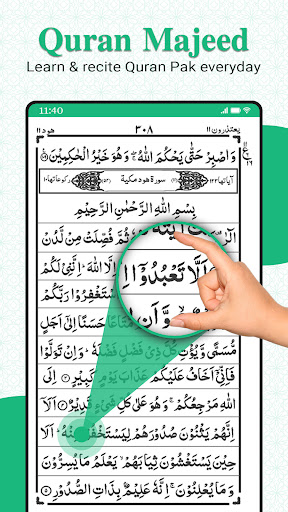 Quran Majeed
Learn & recite Quran Pak everyday
11:40
يعتذرون ١١ ٣٠٨ هود ١١
وَاصْبِرْ حَتّٰى يَحْكُمَ اللّٰهُ ۖ وَهُوَ خَيْرُ الْحٰكِمِيْنَ
سورة هود مكية
بِسْمِ اللّٰهِ الرَّحْمٰنِ الرَّحِيْمِ
ثُمَّ فُصِّلَتْ مِنْ لَّدُنْ
اَلَّا تَعْبُدُوْۤا اِلَّا اللّٰهَ ؕ اِنَّنِيْ لَكُمْ
وَّاَنِ اسْتَغْفِرُوْا رَبَّكُمْ
مَّتَاعًا حَسَنًا اِلٰۤى اَجَلٍ
مُّسَمًّى وَّيُؤْتِ كُلَّ ذِيْ فَضْلٍ فَضْلَهٗ ؕ وَاِنْ تَوَلَّوْا
فَاِنِّيْۤ اَخَافُ عَلَيْكُمْ عَذَابَ يَوْمٍ كَبِيْرٍ اِلَى
اللّٰهِ مَرْجِعُكُمْ ۚ وَهُوَ عَلٰى كُلِّ شَيْءٍ قَدِيْرٌ اَلَاۤ
اِنَّهُمْ يَثْنُوْنَ صُدُوْرَهُمْ لِيَسْتَخْفُوْا مِنْهُ ؕ اَلَا
حِيْنَ يَسْتَغْشُوْنَ ثِيَابَهُمْ ۙ يَعْلَمُ مَا يُسِرُّوْنَ
وَمَا يُعْلِنُوْنَ ۚ اِنَّهٗ عَلِيْمٌۢ بِذَاتِ الصُّدُوْرِ